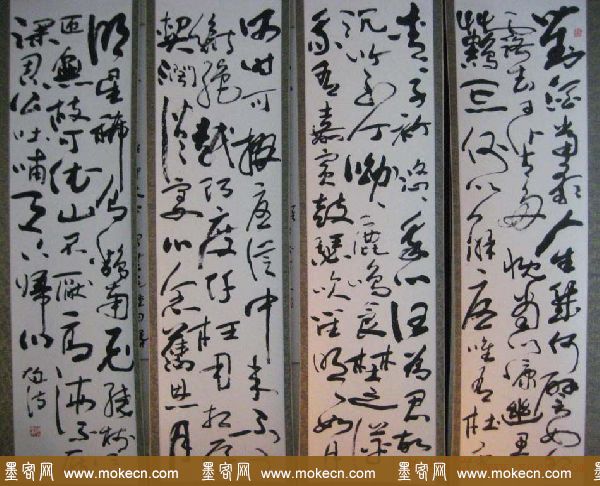 對酒當歌人生幾何譬如
露去日苦多慨當以慷幽思
難忘何以解憂唯有杜
青青子衿悠悠我心但為君故
沉吟至今呦呦鹿鳴食野之苹
我有嘉賓鼓瑟吹笙明明如月
何時可掇憂從中來不
斷絕越陌度阡枉用相存
契闊談宴心念舊恩月
明星稀烏鵲南飛繞樹
匝無枝可依山不厭高海不
深周公吐哺天下歸心
墨客网 www.mokecn.com 墨客网 www.mokecn.com 墨客网